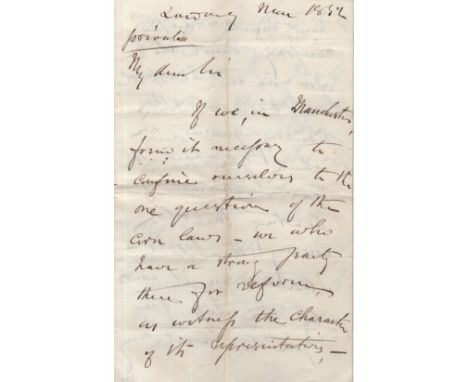 Mar 1852
private
My dear Sir
If we, in Manchester,
found it necessary to
confine ourselves to the
one question of the
corn laws - we who
have a strong party
there for reform,
as witness the character
of its representatives, -